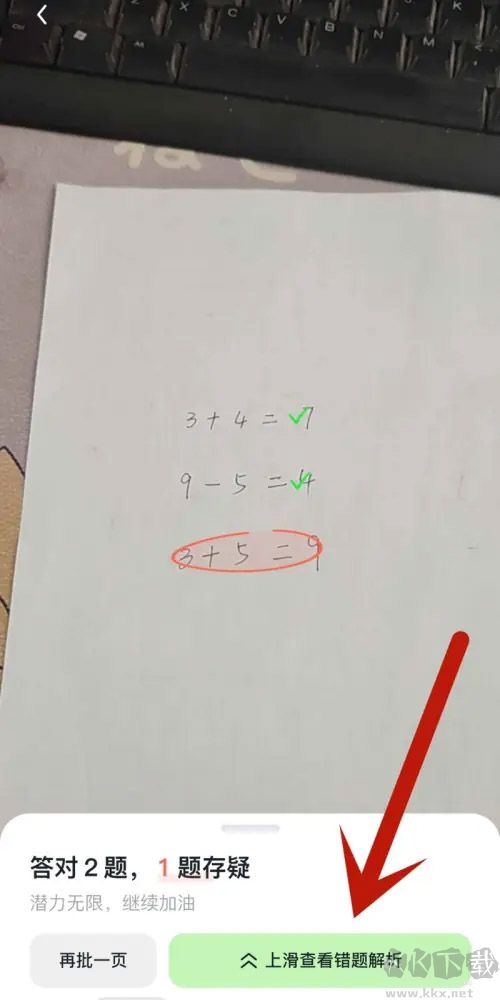 3+4=7
9-5=4
3+5=9
答对2题，1题存疑
潜力无限，继续加油
再批一页
上滑查看错题解析
KK下载
www.kkx.net